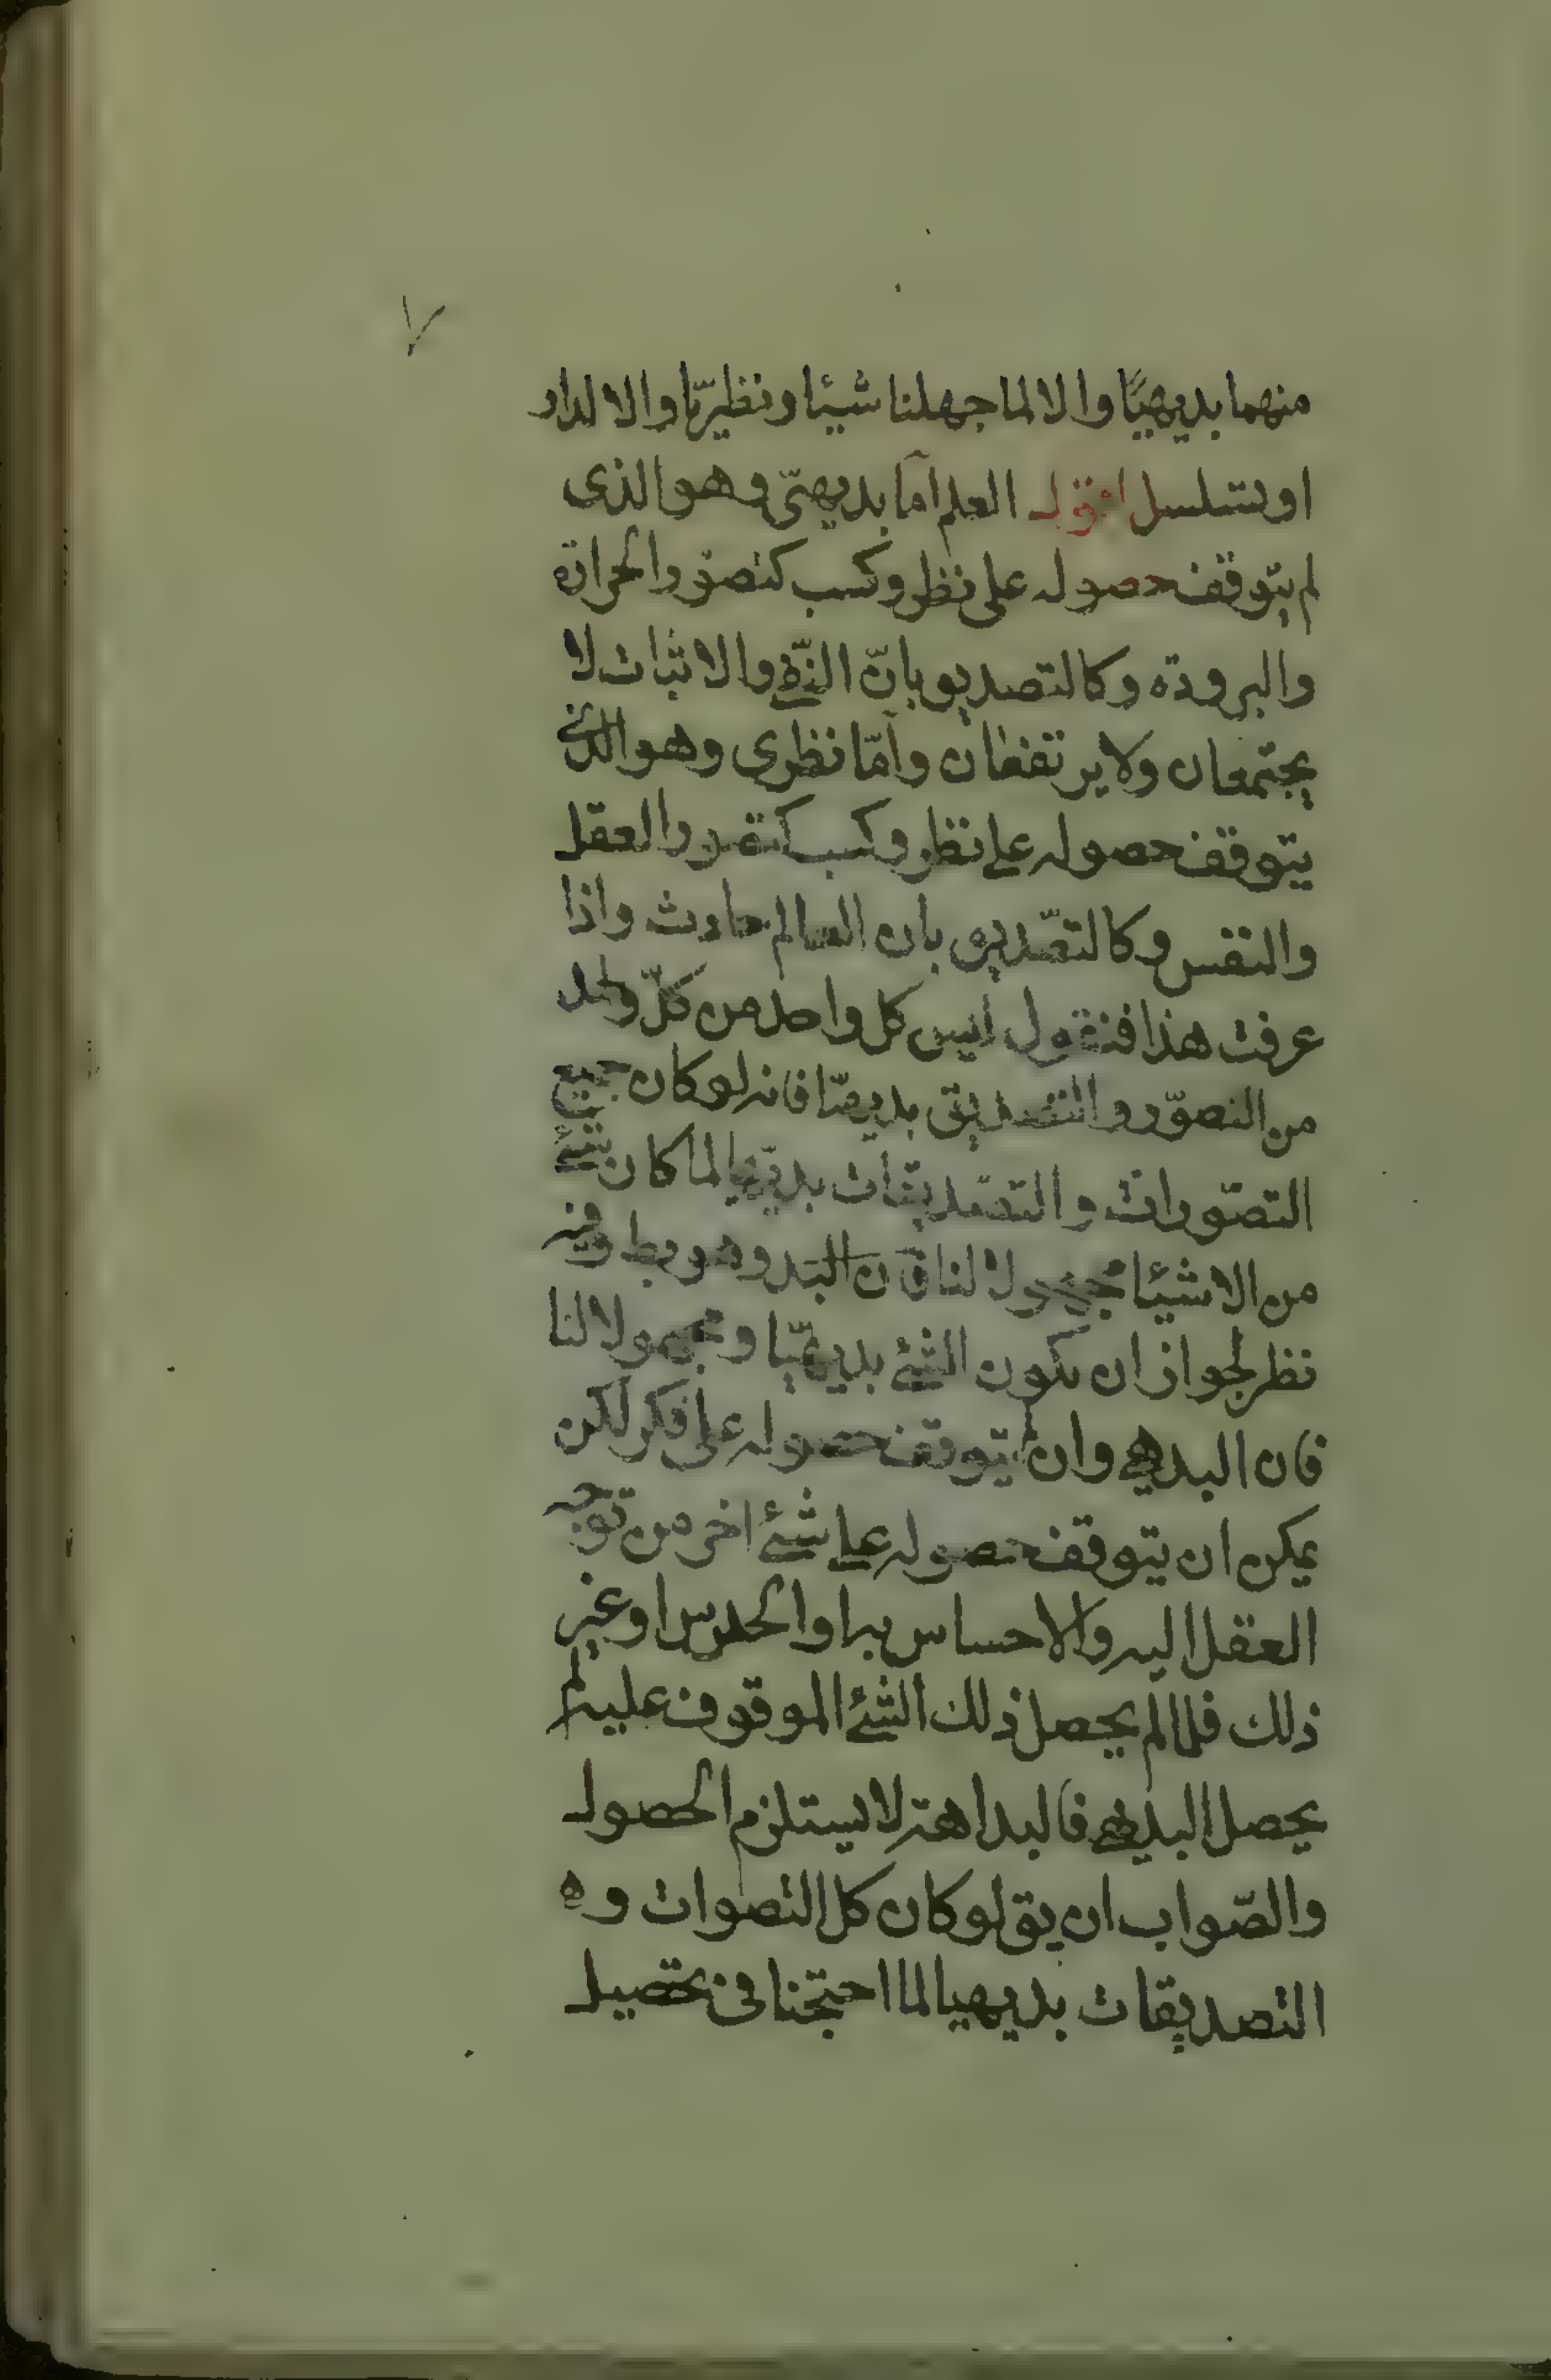 ٧
منهما بديهيًّا والا لما جهلنا شيئا ونظريّا والا لدار
او تسلسل اقول العلم امّا بديهىّ وهو الذى
لم يتوقف حصوله على نظر وكسب كتصور الحرارة
والبرودة وكالتصديق بانّ النّفي والاثبات لا
يجتمعان ولا يرتفعان وامّا نظرى وهو الذي
يتوقف حصوله على نظر وكسب كتصور العقل
والنفس وكالتصّديق بان العالم حادث واذا
عرفت هذا فنقول ليس كل واحد من كلّ واحد
من التصوّر والتصديق بديهيّا فانه لو كان جميع
التصّورات والتصّديقات بديهيّا لما كان شئ
من الاشيئا مجهولا لنا وهو بط وفيه
نظر لجواز ان يكون الشئ بديهيّا ومجهولا لنا
فان البديهي وان لم يتوقف حصوله على فكر لكن
يمكن ان يتوقف حصوله على شئ اخر من توجه
العقل اليه والاحساس به او الحدس او غير
ذلك فلما لم يحصل ذلك الشئ الموقوف عليه لم
يحصل البديهي فالبداهة لا يستلزم الحصول
والصّواب ان يق لو كان كل التصوات و
التصديقات بديهيا لما احتجنا فى تحصيل